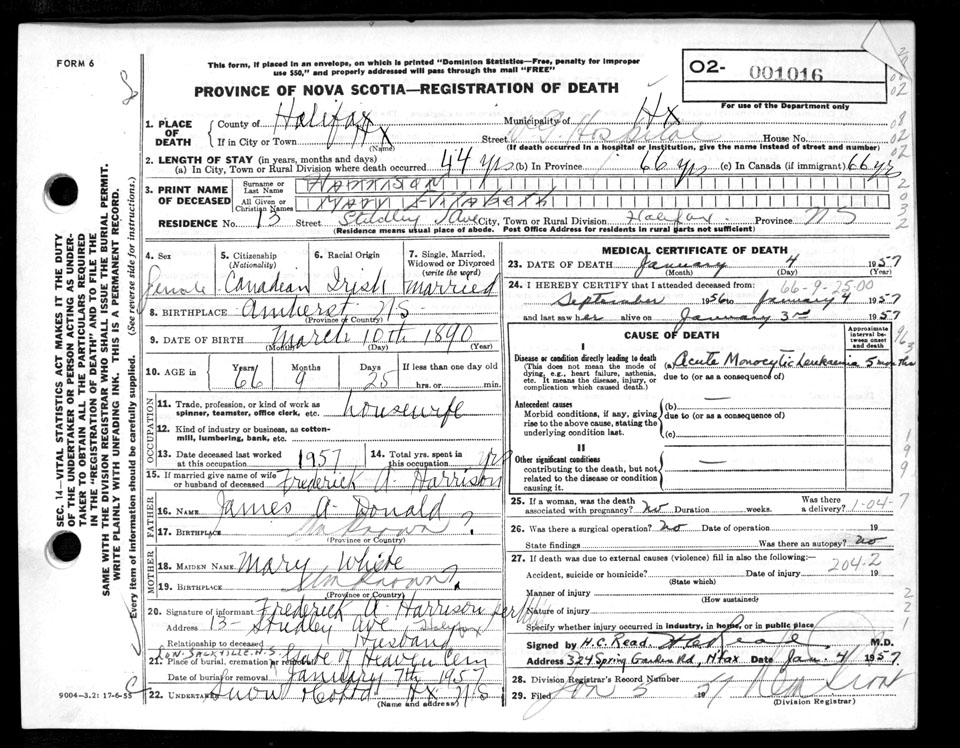 FORM 6
This form, if placed in an envelope, on which is printed "Dominion Statistics—Free, penalty for improper
use $50," and properly addressed will pass through the mail "FREE"
O2- 001016
For use of the Department only
PROVINCE OF NOVA SCOTIA—REGISTRATION OF DEATH
1. PLACE OF DEATH
County of Halifax Municipality of Hx
If in City or Town Hx Street V.G. Hospital House No.
(Name) (If death occurred in a hospital or institution, give the name instead of street and number)
2. LENGTH OF STAY (in years, months and days)
(a) In City, Town or Rural Division where death occurred 44 yrs (b) In Province 66 yrs (c) In Canada (if immigrant) 66 yrs
3. PRINT NAME OF DECEASED
Surname or Last Name Harrison
All Given or Christian Names Mary Elizabeth
RESIDENCE No. 13 Street Studley Ave City, Town or Rural Division Halifax Province NS
(Residence means usual place of abode. Post Office Address for residents in rural parts not sufficient)
4. Sex Female
5. Citizenship (Nationality) Canadian
6. Racial Origin Irish
7. Single, Married, Widowed or Divorced (write the word) Married
8. BIRTHPLACE Amherst NS
(Province or Country)
9. DATE OF BIRTH March 10th 1890
(Month) (Day) (Year)
10. AGE in Years 66 Months 9 Days 25 If less than one day old
hrs. or min.
OCCUPATION
11. Trade, profession, or kind of work as spinner, teamster, office clerk, etc. housewife
12. Kind of industry or business, as cotton-mill, lumbering, bank, etc.
13. Date deceased last worked at this occupation 1957
14. Total yrs. spent in this occupation yrs
15. If married give name of wife or husband of deceased Frederick A. Harrison
FATHER
16. NAME James A. Donald
17. BIRTHPLACE Unknown ?
(Province or Country)
MOTHER
18. MAIDEN NAME Mary White
19. BIRTHPLACE Unknown ?
(Province or Country)
20. Signature of informant Frederick A. Harrison per
Address 13- Studley Ave Halifax
Relationship to deceased Husband
LOW. SACKVILLE N.S.
21. Place of burial, cremation or removal Gate of Heaven Cem
Date of burial or removal January 7th 1957
22. UNDERTAKER Snow Hx NS
(Name and address)
9004-3.21: 17-6-55
SEC. 14—VITAL STATISTICS ACT MAKES IT THE DUTY
OF THE UNDERTAKER OR PERSON ACTING AS UNDER-
TAKER TO OBTAIN ALL THE PARTICULARS REQUIRED
IN THE "REGISTRATION OF DEATH" AND TO FILE THE
SAME WITH THE DIVISION REGISTRAR WHO SHALL ISSUE THE BURIAL PERMIT.
WRITE PLAINLY WITH UNFADING INK. THIS IS A PERMANENT RECORD.
Every item of information should be carefully supplied. (See reverse side for instructions.)
MEDICAL CERTIFICATE OF DEATH
23. DATE OF DEATH January 4 1957
(Month) (Day) (Year)
66-9-25-00
24. I HEREBY CERTIFY that I attended deceased from:
September 1956 to January 4 1957
and last saw her alive on January 3rd 1957
CAUSE OF DEATH
Approximate interval between onset and death
I
Disease or condition directly leading to death
(This does not mean the mode of dying, e.g., heart failure, asthenia, etc. It means the disease, injury, or complication which caused death.)
(a) Acute Monocytic Leukaemia 5 months
due to (or as a consequence of)
Antecedent causes
Morbid conditions, if any, giving rise to the above cause, stating the underlying condition last.
(b) —
due to (or as a consequence of)
(c)
II
Other significant conditions
contributing to the death, but not related to the disease or condition causing it.
—
25. If a woman, was the death associated with pregnancy? No Duration weeks. Was there a delivery? 1-04-7
26. Was there a surgical operation? No Date of operation 19
State findings Was there an autopsy? No
27. If death was due to external causes (violence) fill in also the following: 204-2
Accident, suicide or homicide? Date of injury 19
(State which)
Manner of injury
(How sustained)
Nature of injury
Specify whether injury occurred in industry, in home, or in public place
Signed by H.C. Read. M.D.
Address 324 Spring Garden Rd, Hfax Date Jan. 4 1957
28. Division Registrar's Record Number
29. Filed Jan 5 1957
(Division Registrar)